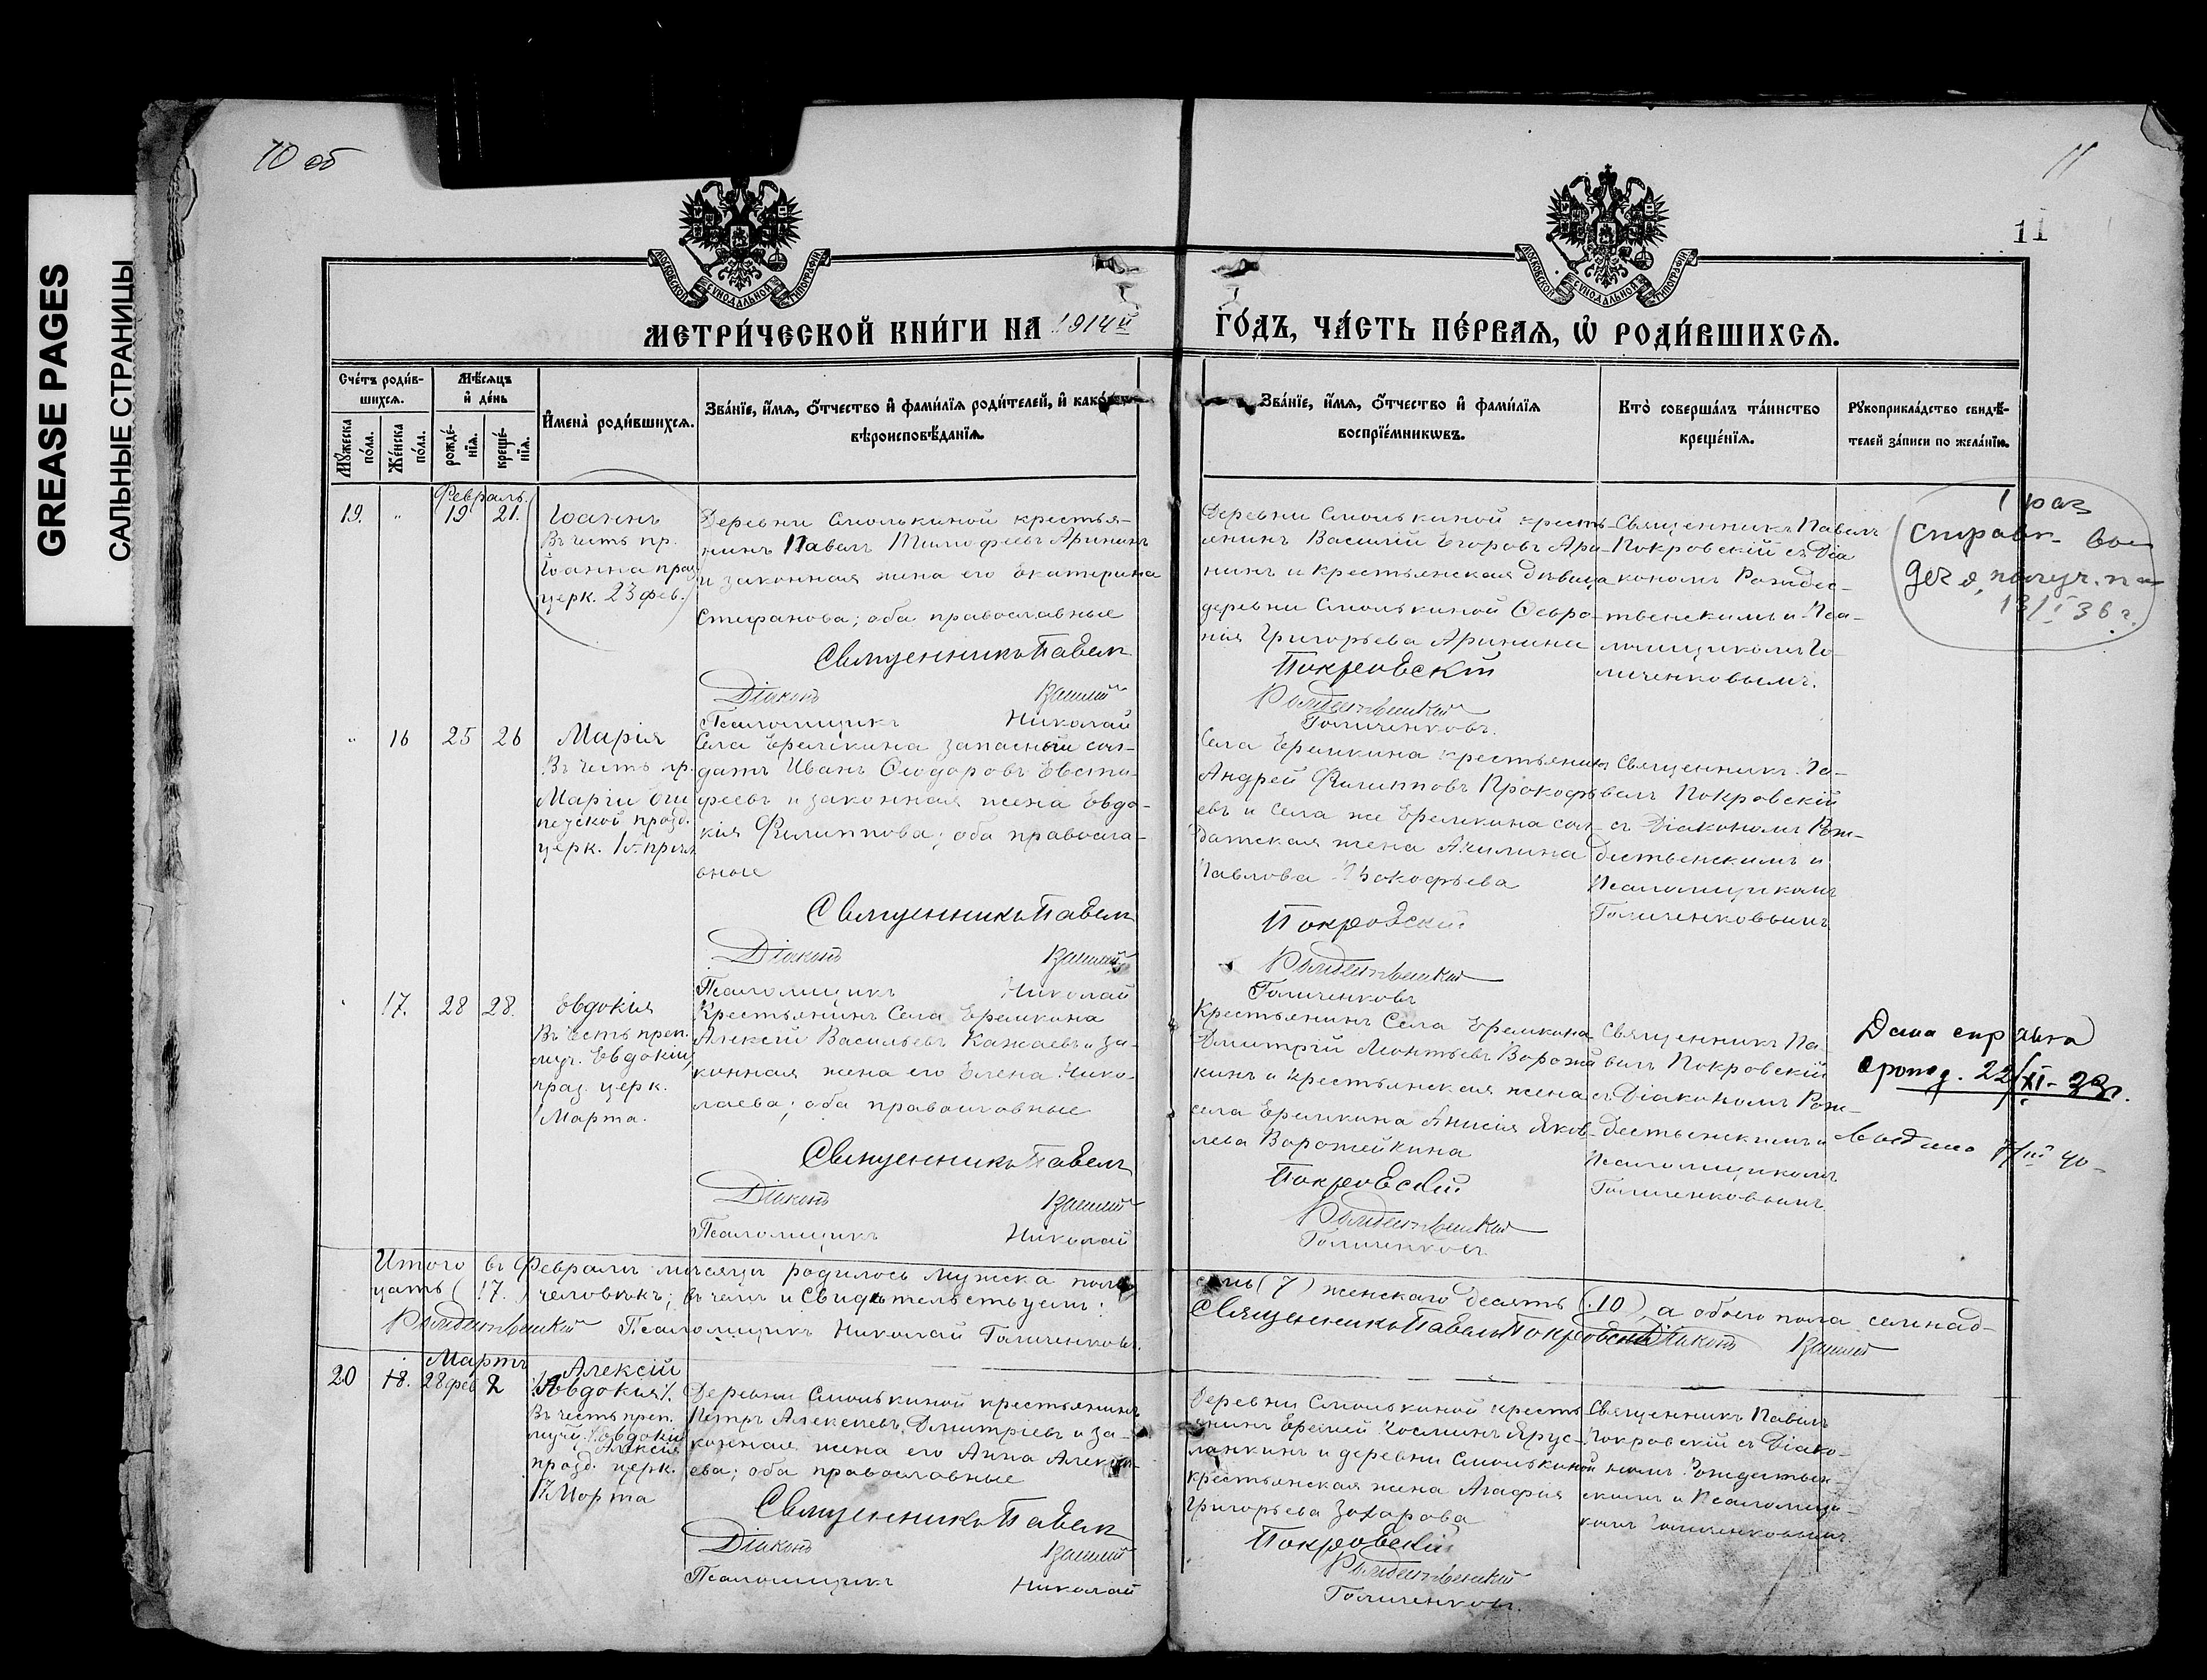 GREASE PAGES
САЛЬНЫЕ СТРАНИЦЫ
10 об
11
11
МОСКОВСКОЙ СѴНОДАЛЬНОЙ ТИПОГРАФІИ
МОСКОВСКОЙ СѴНОДАЛЬНОЙ ТИПОГРАФІИ
МЕТРИ́ЧЕСКОЙ КНИ́ГИ НА 1914й
ГО́ДЪ, ЧА́СТЬ ПЕ́РВАЯ, Ѡ҆ РОДИ́ВШИХСЯ.
Сче́тъ роди́в-
шихся.
Мꙋ́жеска
по́ла.
Же́нска
по́ла.
Мѣ́сяцъ
и҆ де́нь
рожде́-
нїя.
креще́-
нїя.
И҆мена̀ роди́вшихся.
Зва́нїе, и҆́мя, ѻ҆́тчество и҆ фами́лїя роди́телей, и҆ како́гѡ
вѣроисповѣ́данїя.
Зва́нїе, и҆́мя, ѻ҆́тчество и҆ фами́лїя
воспрїе́мникωвъ.
Кто̀ соверша́лъ та́инство
креще́нїя.
Рꙋкоприкла́дство свидѣ́-
телей за́писи по жела́нїю.
Февраль.
19. " 19 21.
Іоаннъ
Въ честь пр.
Іоанна праз.
церк. 23 фев.
Деревни Смолькиной крестья-
нинъ Павелъ Тимофеевъ Арининъ
и законная жена его Екатерина
Стефанова; оба православные
Священникъ Павелъ
Діаконъ Василій
Псаломщикъ Николай
Деревни Смолькиной кресть-
янинъ Василій Егоровъ Ари-
нинъ и крестьянская дѣвица
деревни Смолькиной Февро-
нія Григорьева Аринина
Покровскій
Рождественскій
Голиченковъ.
Священникъ Павелъ
Покровскій съ Діа
кономъ Рождес-
твенскимъ и Пса-
ломщикомъ Го-
личенковымъ.
1 раз
справк.
13/I 36 г.
" 16 25 26
Марія
Въ честь пр.
Маріи Еги
петской празд.
церк. 1го апрѣл
Села Еремкина запасный сол-
датъ Иванъ Ѳеодоровъ Евста-
феевъ и законная жена Евдо-
кія Филиппова; оба правосла-
вные
Священникъ Павелъ
Діаконъ Василій
Псаломщикъ Николай
Села Еремкина крестьянинъ
Андрей Филипповъ Прокофь
евъ и села же Еремкина сол-
датская жена Акилина
Павлова Прокофьева
Покровскій
Рождественскій
Голиченковъ
Священникъ Па-
велъ Покровскій
съ Діакономъ Рож-
дественскимъ и
Псаломщикомъ
Голиченковымъ
17. 28 28.
Евдокія
Въ честь преп.
муч. Евдокіи
праз. церк.
1 Марта.
Крестьянинъ Села Еремкина
Алексій Васильевъ Кажаевъ и за-
конная жена его Елена Нико-
лаева; оба православные
Священникъ Павелъ
Діаконъ Василій
Псаломщикъ Николай
Крестьянинъ Села Еремкина
Дмитрій Леонтьевъ Вороже
кинъ и крестьянская жена
села Еремкина Анисія Яков-
лева Ворожейкина
Покровскій
Рождественскій
Голиченковъ.
Священникъ Па-
велъ Покровскій
съ Діакономъ Рож-
дественскимъ и
Псаломщикомъ
Голиченковымъ
Дана справка
22/XI- 33г.
Выдано 7/III 40
Итого въ Февралѣ мѣсяцѣ родилось мужска пола
семь (7) женскаго десять (10) а обоего пола семнад-
цать (17.) человѣкъ; въ чемъ и свидѣтельствуемъ:
Священникъ Павелъ Покровскій Діаконъ Василій
Рождественскій Псаломщикъ Николай Голиченковъ.
Мартъ
20 18. 28 фев 2
Алексій
Евдокія
Въ честь преп.
муч. Евдокіи
Алексія
празд. церк.
17 Марта
Деревни Смолькиной крестьянинъ
Петръ Алексеевъ Дмитріевъ и за-
конная жена его Анна Алексѣ-
ева; оба православные
Священникъ Павелъ
Діаконъ Василій
Псаломщикъ Николай
Деревни Смолькиной кресть-
янинъ Еремей Косминъ Ярус-
ланкинъ и деревни Смолькиной
крестьянская жена Агафія
Григорьева Захарова
Покровскій
Рождественскій
Голиченковъ.
Священникъ Павелъ
Покровскій съ Діако-
номъ Рождествен-
скимъ и Псаломщи-
комъ Голиченковымъ